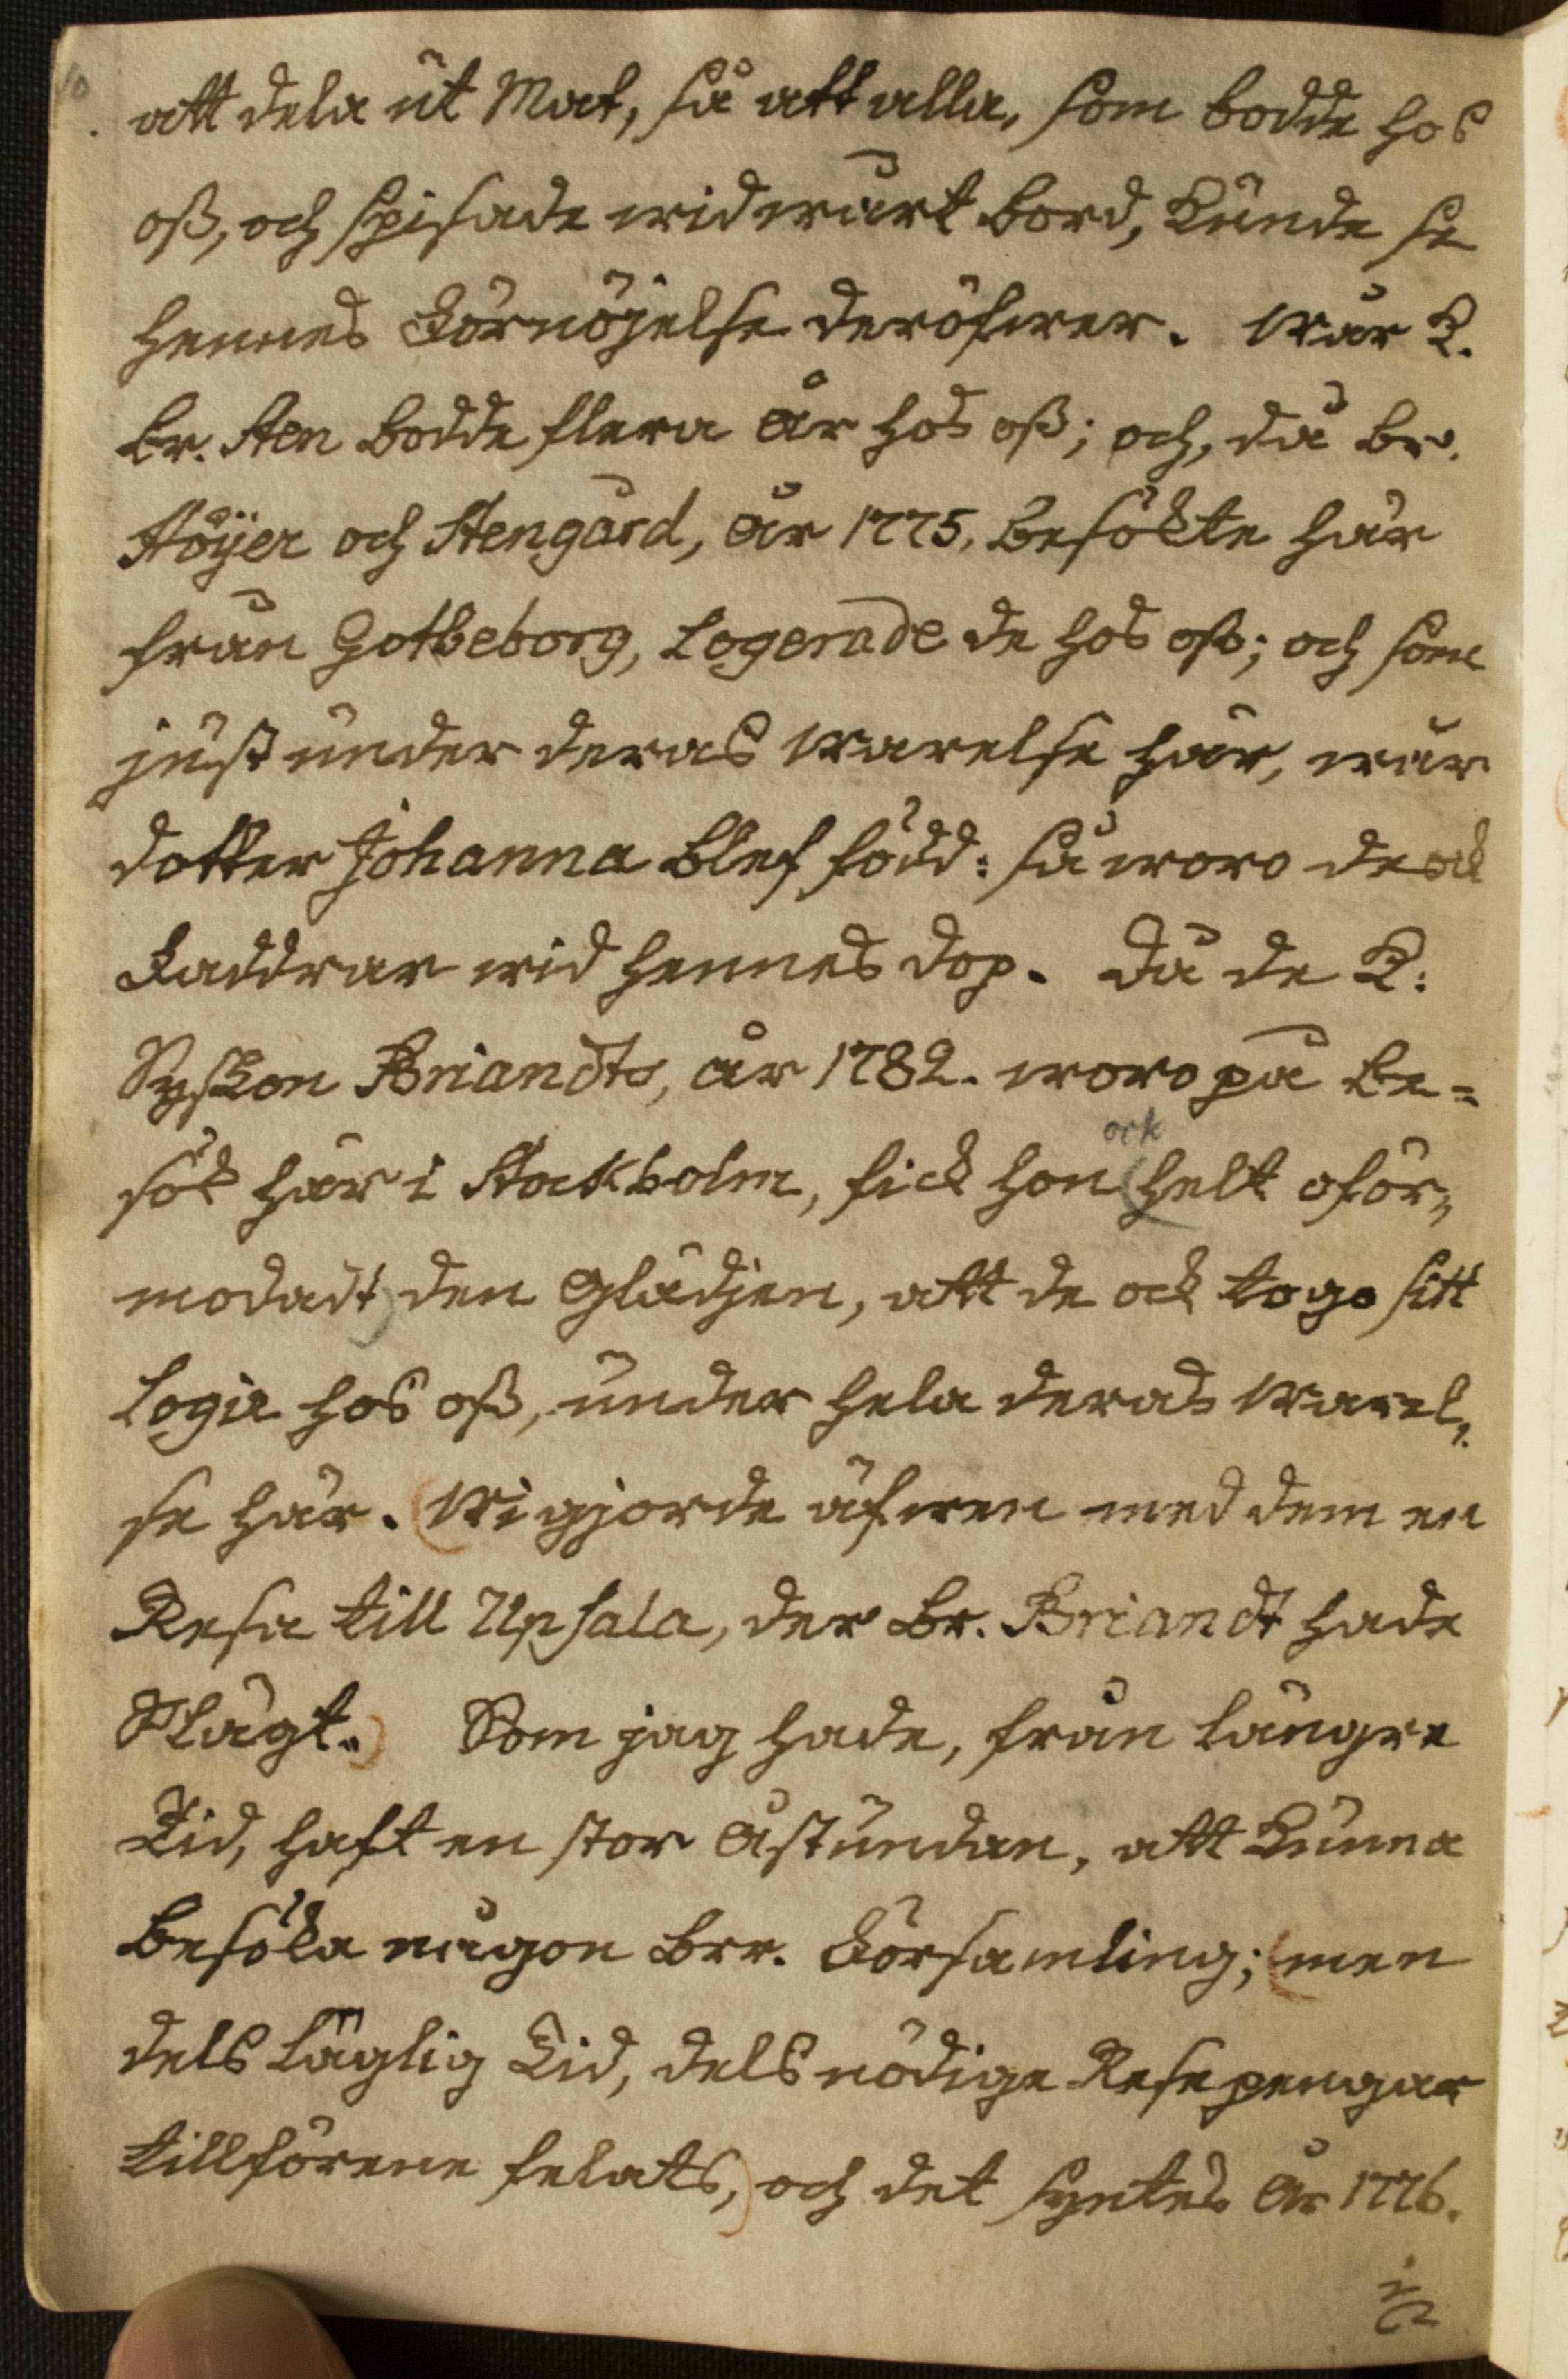 att dela ut Mat, så att alla, som bodde hos
oß, och spisade wid wårt bord, kunde se
hennes Förnöjelse deröfwer. Wår K.
br. Sten bodde flera år hos oß; och, då br.
Höijer och Stengård, år 1775, besökte här
från Gotheborg, Logerade de hos oss; och som
just under deras Warelse här, wår
dotter Johanna blef född: så woro de ock
Faddrar wid hennes dop. Då de K:
Syskon Briandts, år 1782. woro på be=
ock
sök här i Stockholm, fick hon (helt oför„
modadt) den Glädjen, att de ock togo sitt
Logie hos oß, under hela deras Warel„
se här. (Wi gjorde äfwen med dem en
Resa till Upsala, der br. Briandt hade
Slägt.) Som jag hade, från längre
Tid, haft en stor Åstundan, att kunna
besöka någon brr. Församling; (men
dels läglig Tid, dels nödige Resepengar
tillförene felats,) och det syntes år 1776.